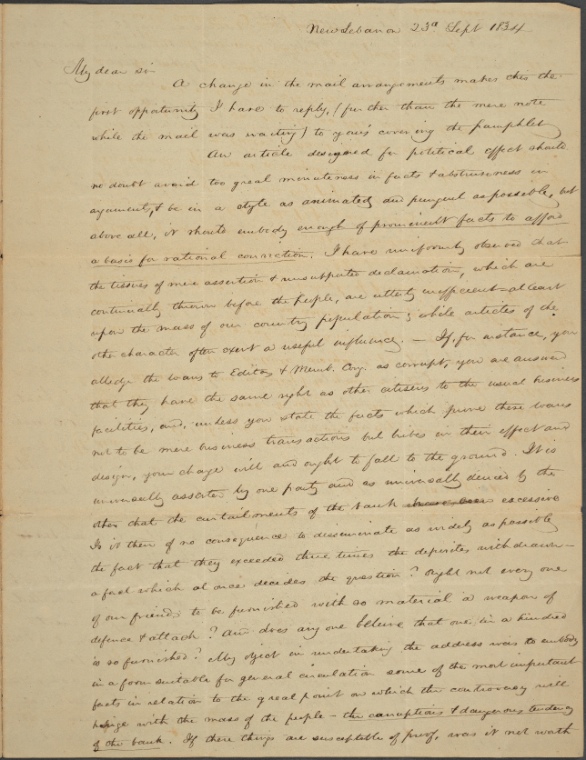 New Lebanon 23d Sept 1834
My dear sir
A change in the mail arrangements makes this the
first oppatunity I have to reply, (further than the mere note
while the mail was waiting) to yours covering the pamphlet
An article designed for political effect should
no doubt avoid too great minuteness in facts & abstruseness in
argument, & be in a style as animated and pungent as possible, but
above all, it should embody enough of prominent facts to afford
a basis for rational conviction. I have uniformly observed that
the tissues of mere assertion & unsupported declamation, which are
continually thrown before the people, are utterly inefficient—at least
upon the mass of our country population; while articles of the
other character often exert a useful influence. — If, for instance, you
alledge the loans to Editors & Memb. Cong. as corrupt, you are answered
that they have the same right as other citizens to the usual business
facilities, and, unless you state the facts which prove these loans
not to be mere business transactions but bribes in their effect and
design, your charge will and ought to fall to the ground. It is
universally asserted by one party and as universally denied by the
other that the curtailments of the bank excessive
Is it then of no consequence to disseminate as widely as possible
the fact that they exceeded three times the deposites withdrawn—
a fact which at once decides the question? Ought not every one
of our friends to be furnished with so material a weapon of
defence & attack? And does any one believe that one in a hundred
is so furnished? My object in undertaking the address was to embody
in a form suitable for general circulation some of the most important
facts in relation to the great point on which the controversy will
hinge with the mass of the people – the corruptions & dangerous tendency
of the bank. If these things are susceptible of proof, was it not worth